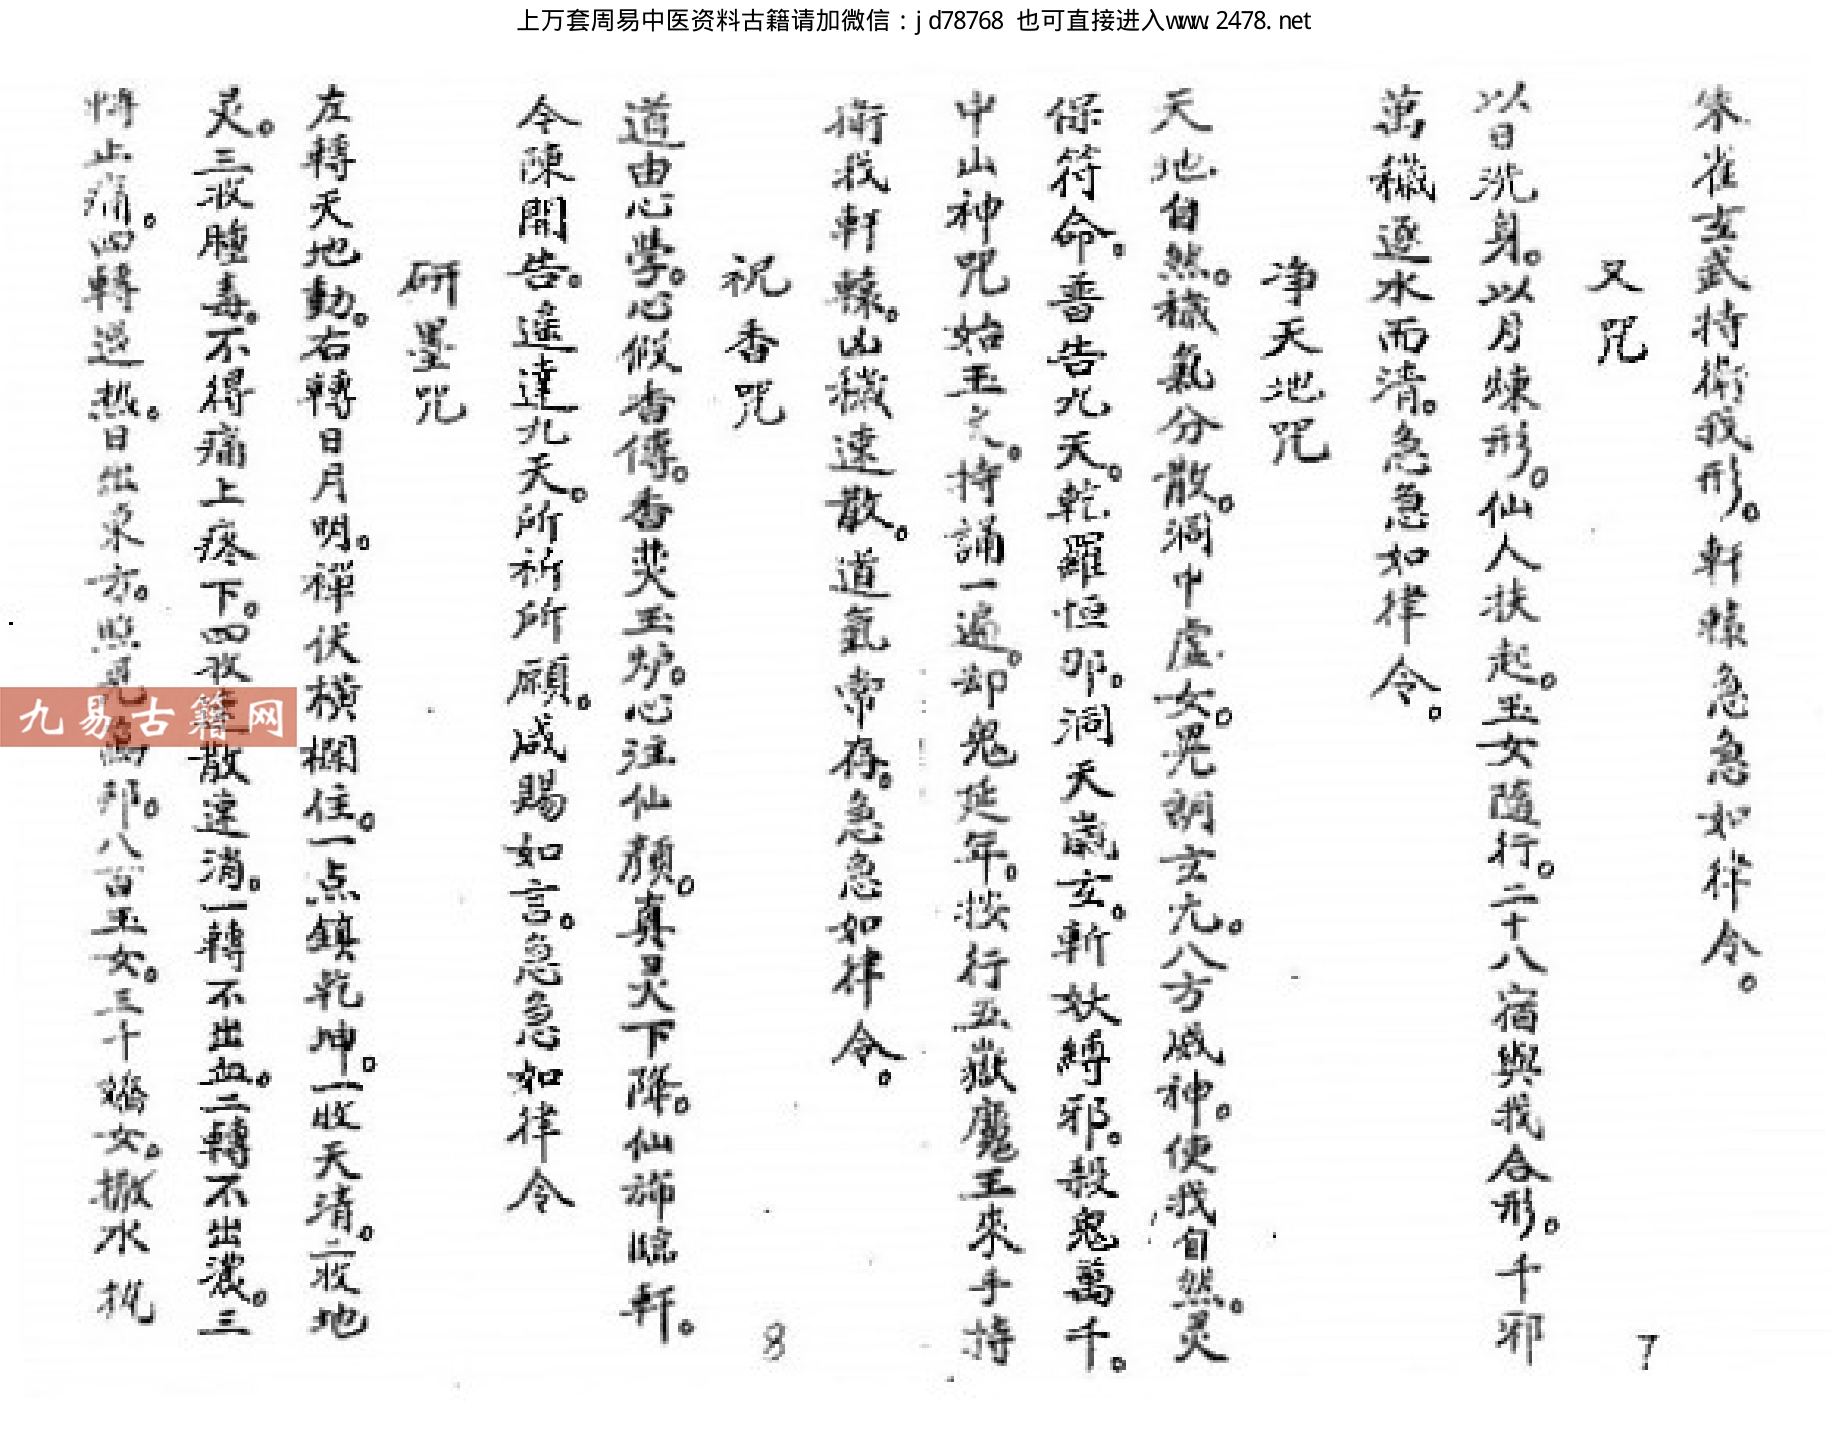 上万套周易中医资料古籍请加微信：jd78768 也可直接进入www.2478.net
朱雀玄武持衛我形。軒轅急急如律令。
又咒
以日洗身。以月煉形。仙人扶起。玉女隨行。二十八宿與我合形。千邪
萬穢逐水而清。急急如律令。
净天地咒
天地自然。穢氣分散。洞中虛女。晃朗玄元。八方威神。使我自然。灵
保符命。普告九天。乾羅恒那。洞天罡玄。斬妖縛邪。殺鬼萬千。
中山神咒始玉文。持誦一遍。却鬼延年。按行五嶽魔王來手持
衛我軒轅。凶穢遠散。道氣常存。急急如律令。
祝香咒
道由心學。心假香傳。香爇玉炉。心注仙顏。真灵下降。仙旆臨軒。
令陳開告。遙達九天。所祈所願。咸賜如言。急急如律令
研墨咒
左轉天地動。右轉日月明。禪伏横欄住。一点鎮乾坤。一收天清。二收地
灵。三收腫毒。不得痛上疼下。四收散違消。一轉不出血。二轉不出濃。三
轉止痛。四轉退热。日出東方。照見邪。八百玉女。三十嬌女。撒水
九易古籍网
8
7